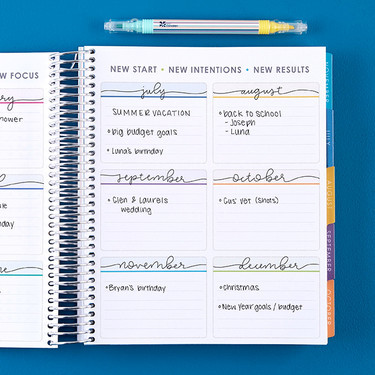 W FOCUS
ary
hower
le
hday
e
day
NEW START • NEW INTENTIONS • NEW RESULTS
july
SUMMER VACATION
• big budget goals
• Luna's birthday
august
• back to school
- Joseph
- Luna
september
• Glen & Laurel's
wedding
october
• Gus vet (shots)
november
• Bryan's birthday
december
• christmas
• New Year goals / budget
NOVEMBER
JULY
AUGUST
SEPTEMBER
OCTOBER